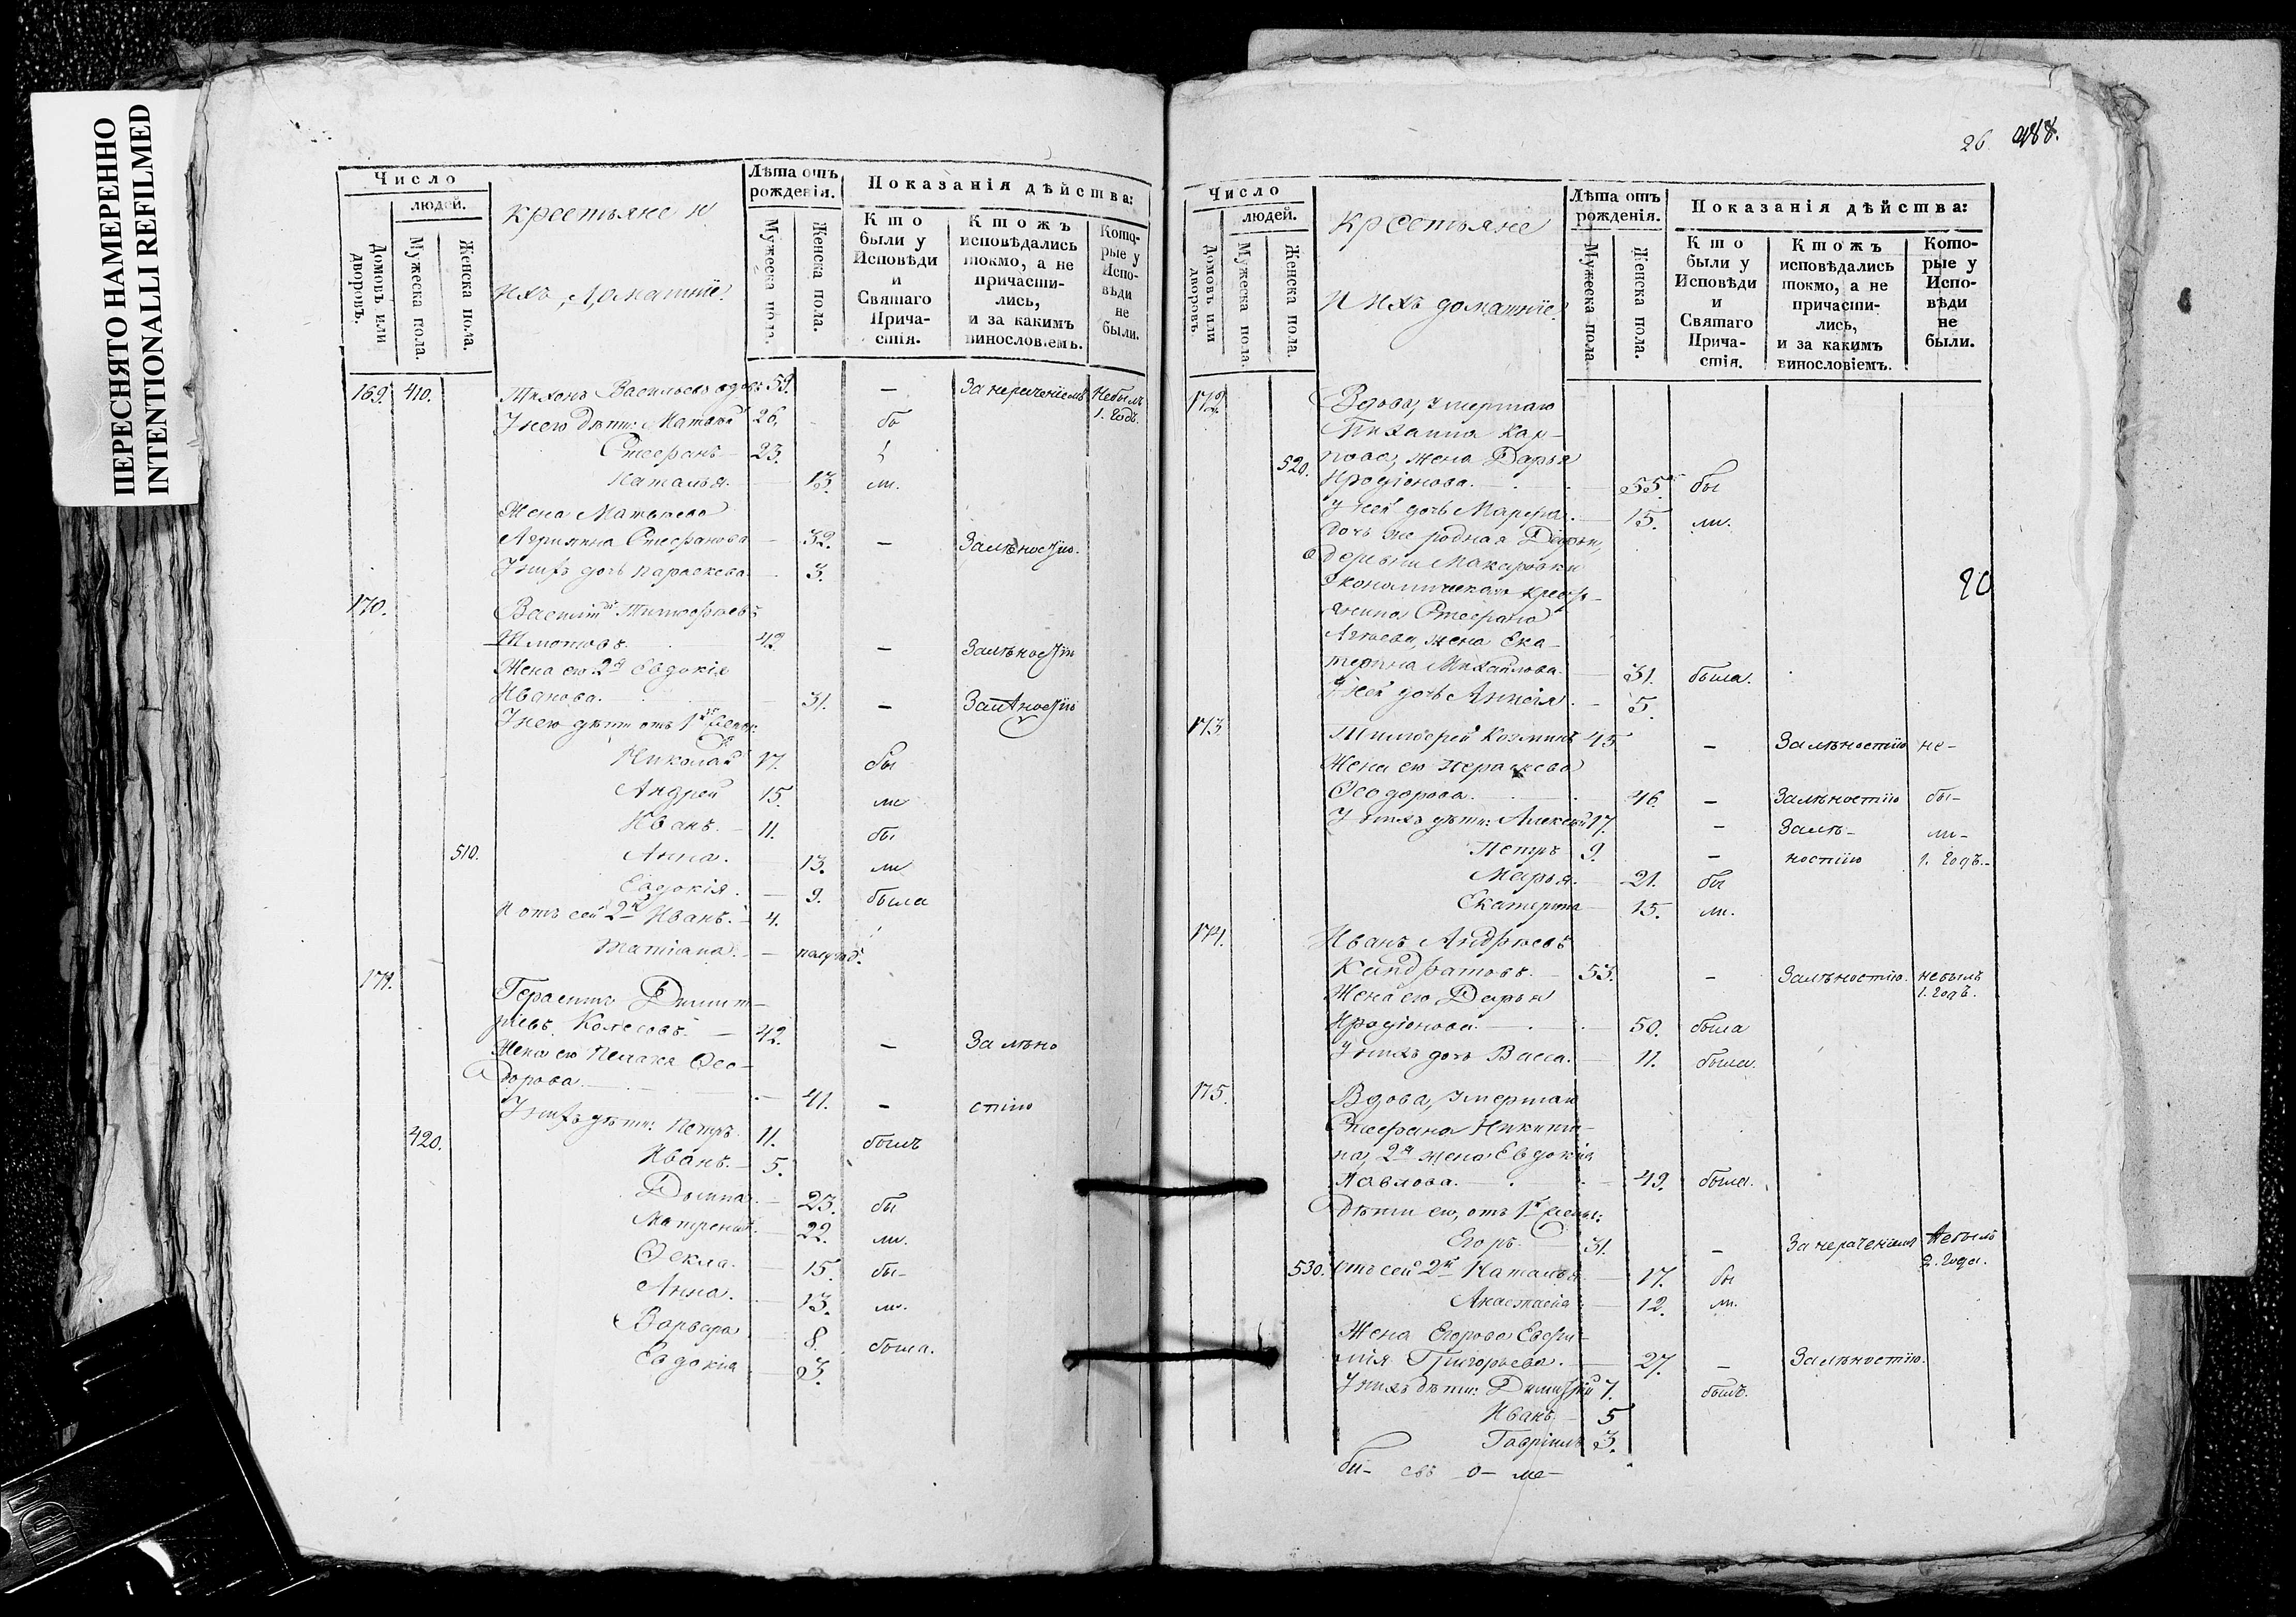 ПЕРЕСНЯТО НАМЕРЕННО
INTENTIONALLI REFILMED
Число
людей.
Домовъ или дворовъ.
Мужеска пола.
Женска пола.
Крестьяне и
ихъ, домашніе.
Лѣта отъ рожденія.
Мужеска пола.
Женска пола.
Показанія дѣйства:
Кто были у Исповѣди и Святаго Причастія.
Ктожъ исповѣдались токмо, а не причастились, и за какимъ винословіемъ.
Которые у Исповѣди не были.
169. 410. Тихонъ Васильевъ вдовъ 59. — За нерачениемъ Небылъ
1. годъ.
У него дѣти: Матвей 26. бы
Стефанъ 23.
Наталья. 13. ли.
Жена Матвѣева
Агрипина Стефанова 32. — За лѣностію.
У нихъ дочь Параскева 3.
170. Василій Тимофѣевъ
42. — За лѣностію
Жена его 2я Евдокія
Иванова. 31. — За лѣностію
У него дѣти отъ 1й жены:
Николай 17. бы
Андрей 15. ли
Иванъ. 11. бы
510. Анна. 13. ли
Евдокія. 9. была
И отъ сей 2й Иванъ. 4.
Татіана. полгод.
171. Герасимъ Димит-
ріевъ Колесовъ. 42. — За лѣно
Жена его Пелагея Ѳео-
дорова. 41. — стію
У нихъ дѣти: Петръ. 11. былъ
420. Иванъ. 5.
Домна. 23. бы
Матрена. 22. ли.
Ѳекла. 15. бы-
Анна. 13. ли.
Варвара 8. была.
Евдокіа 3.
26. 488.
Число
людей.
Домовъ или дворовъ.
Мужеска пола.
Женска пола.
Крестьяне
и ихъ домашніе.
Лѣта отъ рожденія.
Мужеска пола.
Женска пола.
Показанія дѣйства:
Кто были у Исповѣди и Святаго Причастія.
Ктожъ исповѣдались токмо, а не причастились, и за какимъ винословіемъ.
Которые у Исповѣди не были.
172. Вдова, умершаго
Михаила Кар-
пова, жена Дарья
520. Иродіонова. 55. бы
У ней дочь Марфа. 15. ли.
Дочь же родная Дарьи,
деревни Макаровки
Экономическаго крестья-
янина Стефана
жена Ека-
терина Михайлова. 31. была.
У ней дочь 5.
20
173. Тимоѳей Козминъ 45 — За лѣностію не-
Жена его Параскева
Ѳеодорова. 46. — За лѣностію бы-
У нихъ дѣти: Алексѣй 17. — За лѣ- ли-
Петръ 9. — ностію 1. годъ.-
Марья. 21. бы
Екатерина 15. ли.
174. Иванъ Андрѣевъ
Кандратовъ. 53. — За лѣностію. небылъ
1. годъ.
Жена его Дарья
Иродіонова. 50. была
У нихъ дочь Васса. 11. была.
175. Вдова, умершаго
Стефана Никити-
на, 2я жена Евдокія
Павлова. 49. была.
Дѣти его, отъ 1й жены:
Егоръ. 31. — За нерачениемъ Небылъ
2. года.
530. Отъ сей 2й Наталья. 17. бы
Анастасіа 12. ли.
Жена Егорова Евфи-
мія Григорьева. 27. — За лѣностію.
У нихъ дѣти: Димитрій 7. былъ.
Иванъ. 5
Гавріилъ 3.